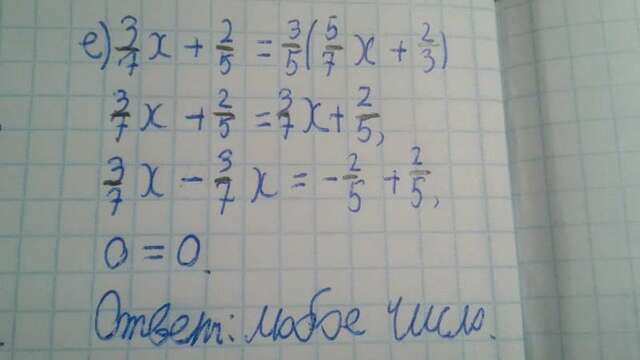 е) 3/7 x + 2/5 = 3/5 (5/7 x + 2/3)
3/7 x + 2/5 = 3/7 x + 2/5,
3/7 x - 3/7 x = - 2/5 + 2/5,
0 = 0.
Ответ: любое число.